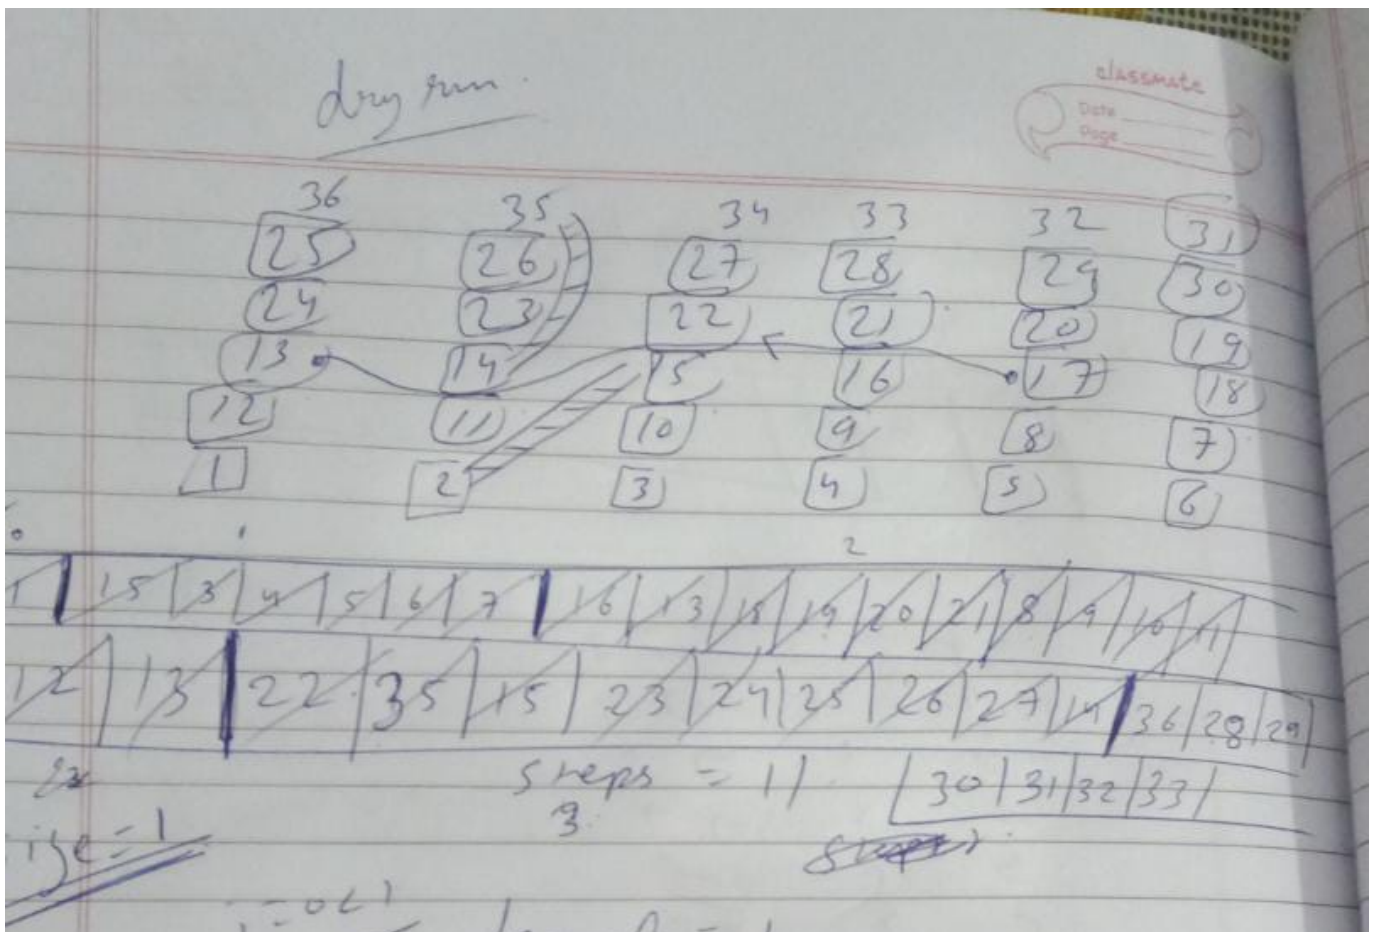 dry run.
classmate
Date
Page
36 35 34 33 32 31
25 26 27 28 29 30
24 23 22 21 20 19
13 14 15 16 17 18
12 11 10 9 8 7
1 2 3 4 5 6
0 1 2
1 15 3 4 5 6 7 16 13 18 19 20 21 8 9 10 11
12 13 22 35 15 23 24 25 26 27 14 36 28 29
steps = 1 30 31 32 33
3
ize = 1
i=0<1